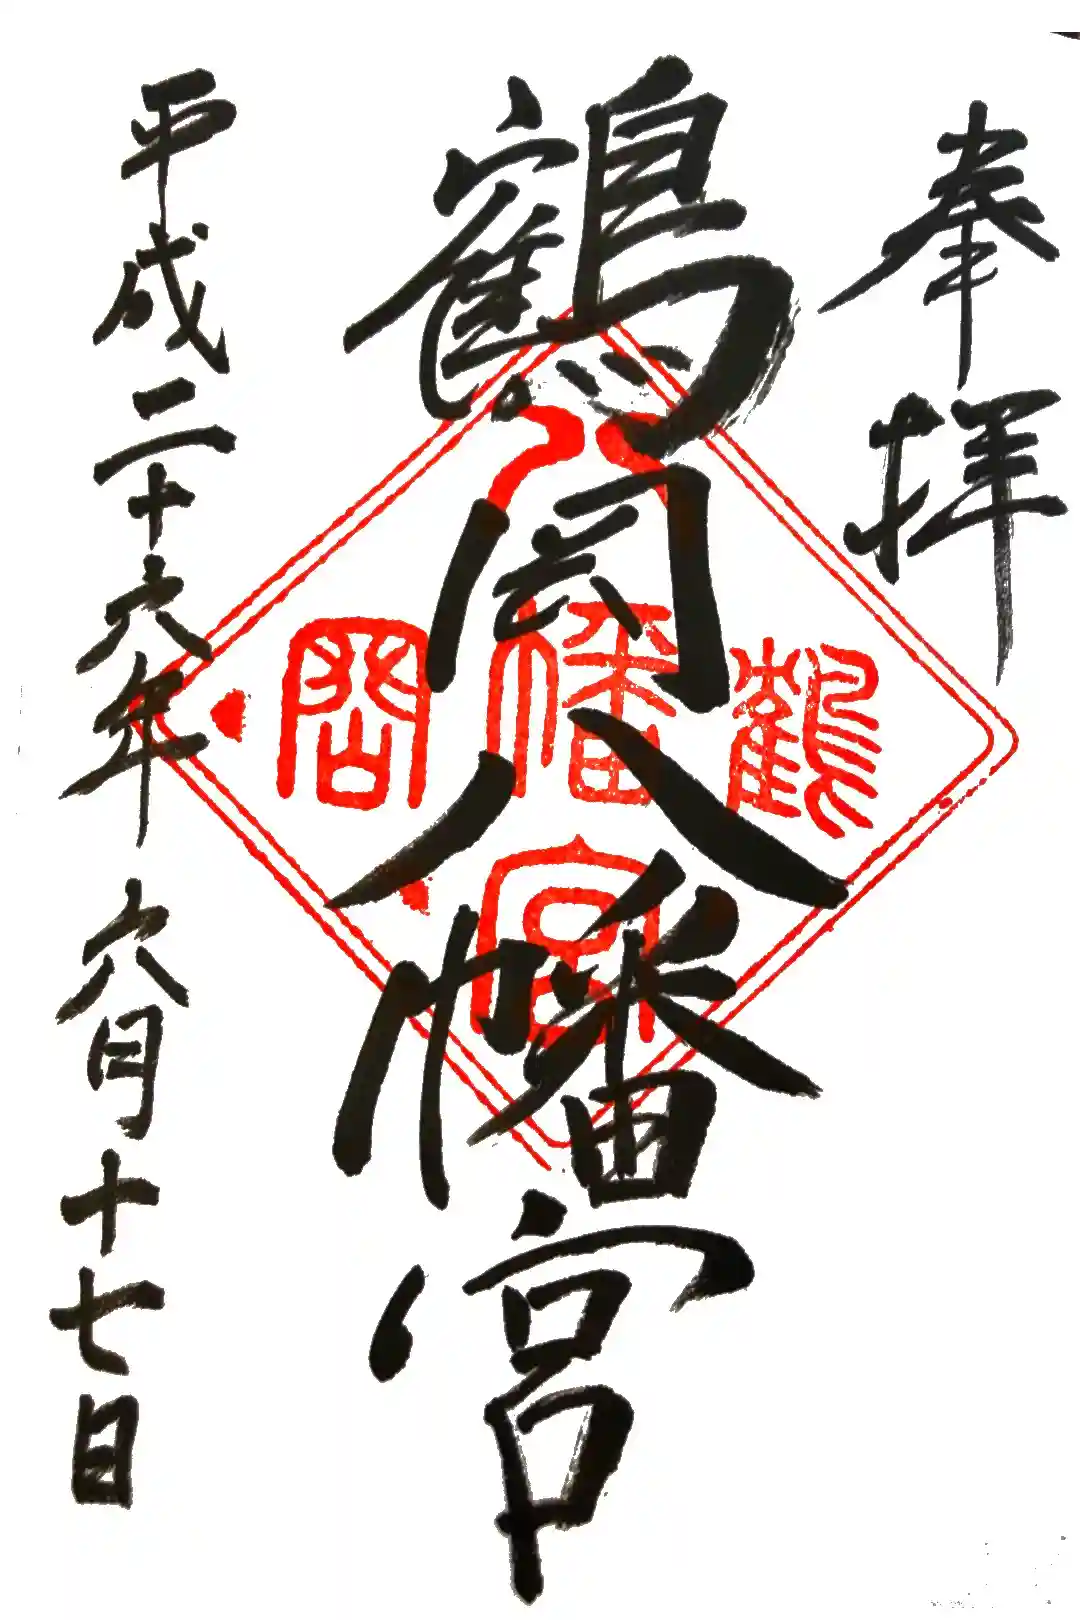 奉拝
鶴岡八幡宮
平成二十六年六月十七日
鶴岡八幡宮